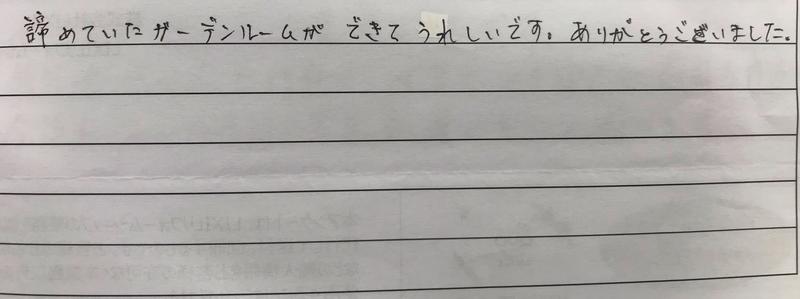 諦めていたガーデンルームができてうれしいです。ありがとうございました。